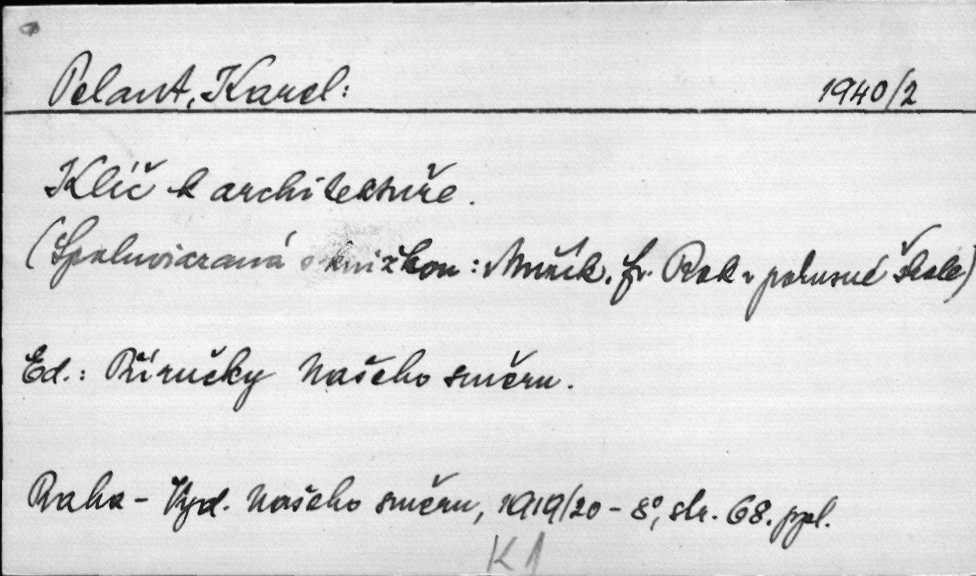 Pelant, Karel: 1940/2
Klíč k architektuře.
(Spoluviazaná s knižkou: Mužík, fr. Rok v pokusné škole)
Ed.: Příručky Našeho směru.
Praha - Vyd. Našeho směru, 1919/20 - 8°, str. 68. ppl.
K 1